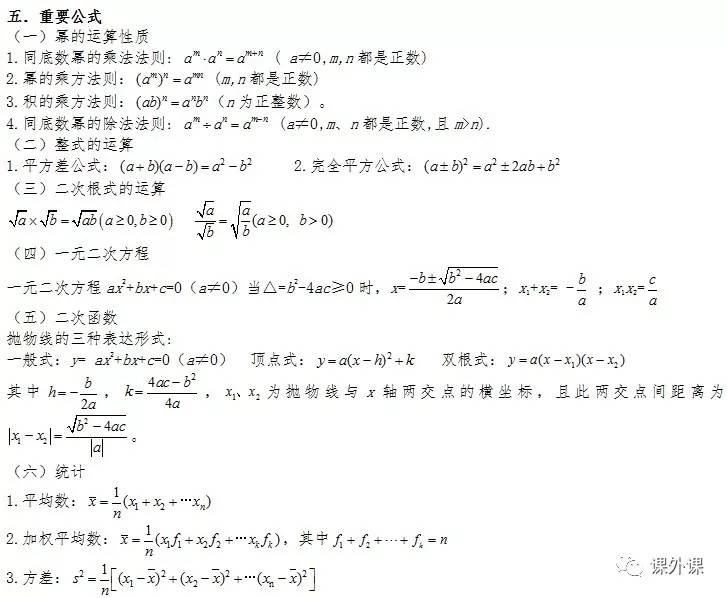 五．重要公式
（一）幂的运算性质
1.同底数幂的乘法法则：aᵐ·aⁿ=aᵐ⁺ⁿ ( a≠0,m,n 都是正数)
2.幂的乘方法则：(aᵐ)ⁿ=aᵐⁿ (m,n 都是正数)
3.积的乘方法则：(ab)ⁿ=aⁿbⁿ（n 为正整数）。
4.同底数幂的除法法则：aᵐ÷aⁿ=aᵐ⁻ⁿ (a≠0,m、n 都是正数,且 m>n).
（二）整式的运算
1.平方差公式：(a+b)(a−b)=a²−b² 2.完全平方公式：(a±b)²=a²±2ab+b²
（三）二次根式的运算
√a×√b=√ab(a≥0,b≥0) √a/√b=√(a/b)(a≥0, b>0)
（四）一元二次方程
一元二次方程 ax²+bx+c=0（a≠0）当△=b²−4ac≥0 时，x=(−b±√(b²−4ac))/2a；x₁+x₂= −b/a ；x₁x₂=c/a
（五）二次函数
抛物线的三种表达形式：
一般式：y= ax²+bx+c=0（a≠0） 顶点式：y=a(x−h)²+k 双根式：y=a(x−x₁)(x−x₂)
其中 h=−b/2a，k=(4ac−b²)/4a，x₁、x₂ 为抛物线与 x 轴两交点的横坐标，且此两交点间距离为
|x₁−x₂|=√(b²−4ac)/|a|。
（六）统计
1.平均数：x̄=1/n(x₁+x₂+⋯xₙ)
2.加权平均数：x̄=1/n(x₁f₁+x₂f₂+⋯xₖfₖ)，其中 f₁+f₂+⋯+fₖ=n
3.方差：s²=1/n[(x₁−x̄)²+(x₂−x̄)²+⋯(xₙ−x̄)²]
课外课